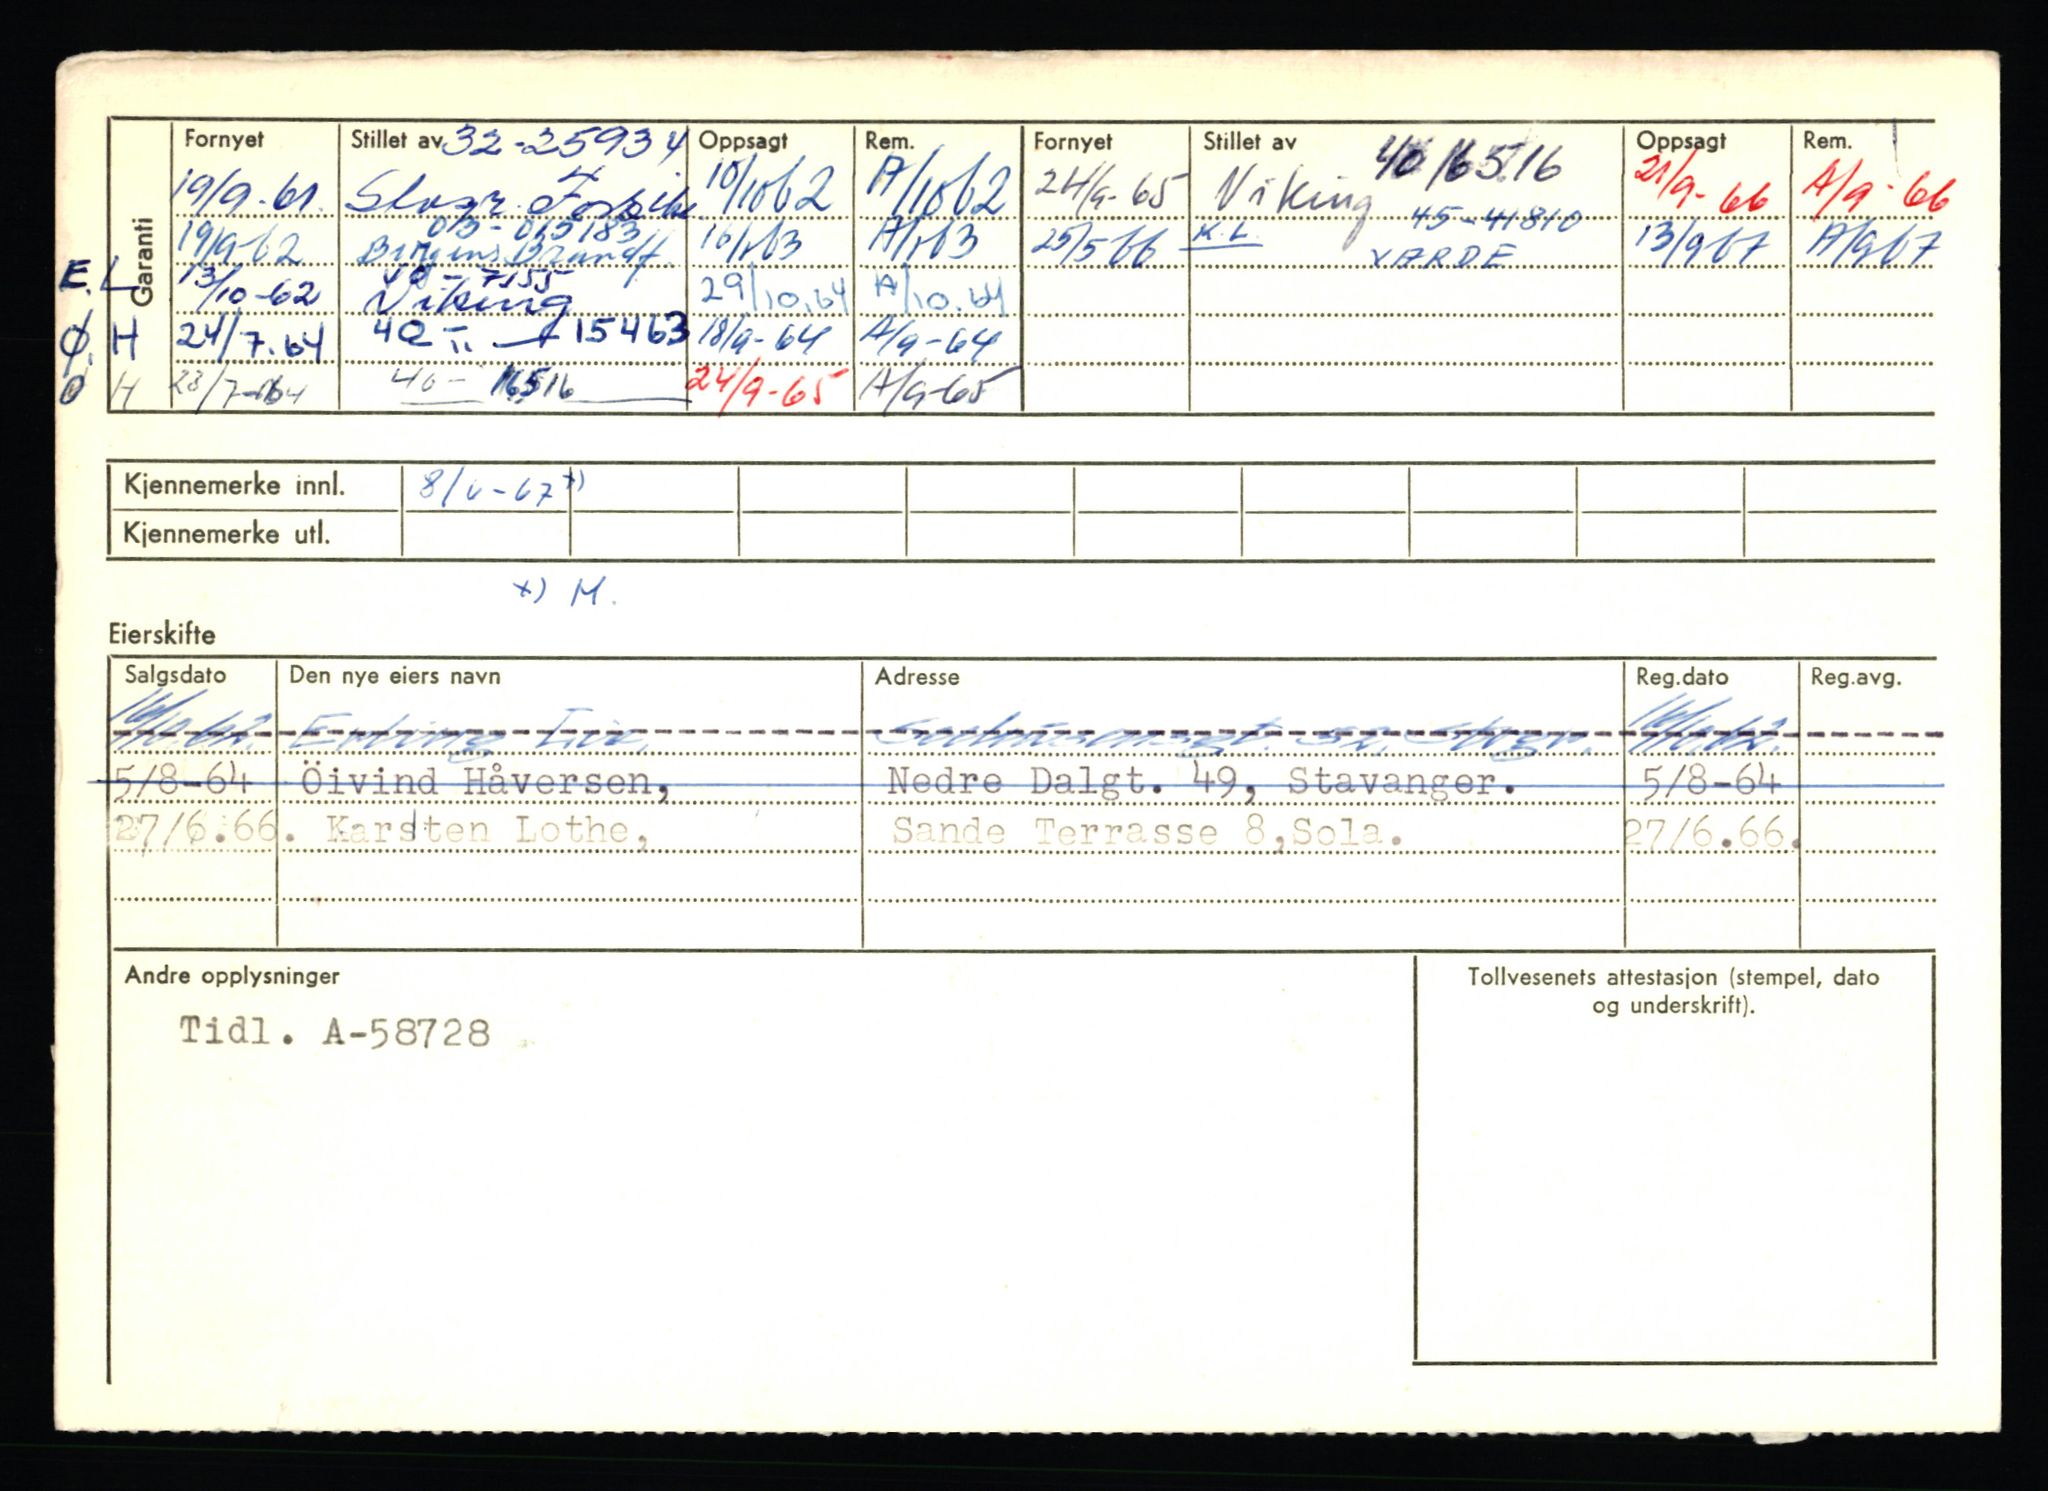 Garanti
Fornyet Stillet av 32-25934 Oppsagt Rem. Fornyet Stillet av 40/6516 Oppsagt Rem.
19/9-61. 10/1062 A/1062 24/9-65 Viking 21/9-66 A/9-66
19/9-62 013-015183 Bergens Brandf. 16/163 A/163 25/566 K.L. 45-41810 VARDE 13/967 A/967
E.L 13/10-62 Viking 29/10.64 A/10.64
Ø.H 24/7.64 40-"- 15463 18/9-64 A/9-64
Ø H 28/7-64 40- 16516 24/9-65 A/9-65
Kjennemerke innl. 8/6-67 x)
Kjennemerke utl.
x) M.
Eierskifte
Salgsdato Den nye eiers navn Adresse Reg.dato Reg.avg.
Erling
5/8-64 Öivind Håversen, Nedre Dalgt. 49, Stavanger. 5/8-64
27/6.66. Karsten Lothe, Sande Terrasse 8,Sola. 27/6.66.
Andre opplysninger
Tollvesenets attestasjon (stempel, dato
og underskrift).
Tidl. A-58728